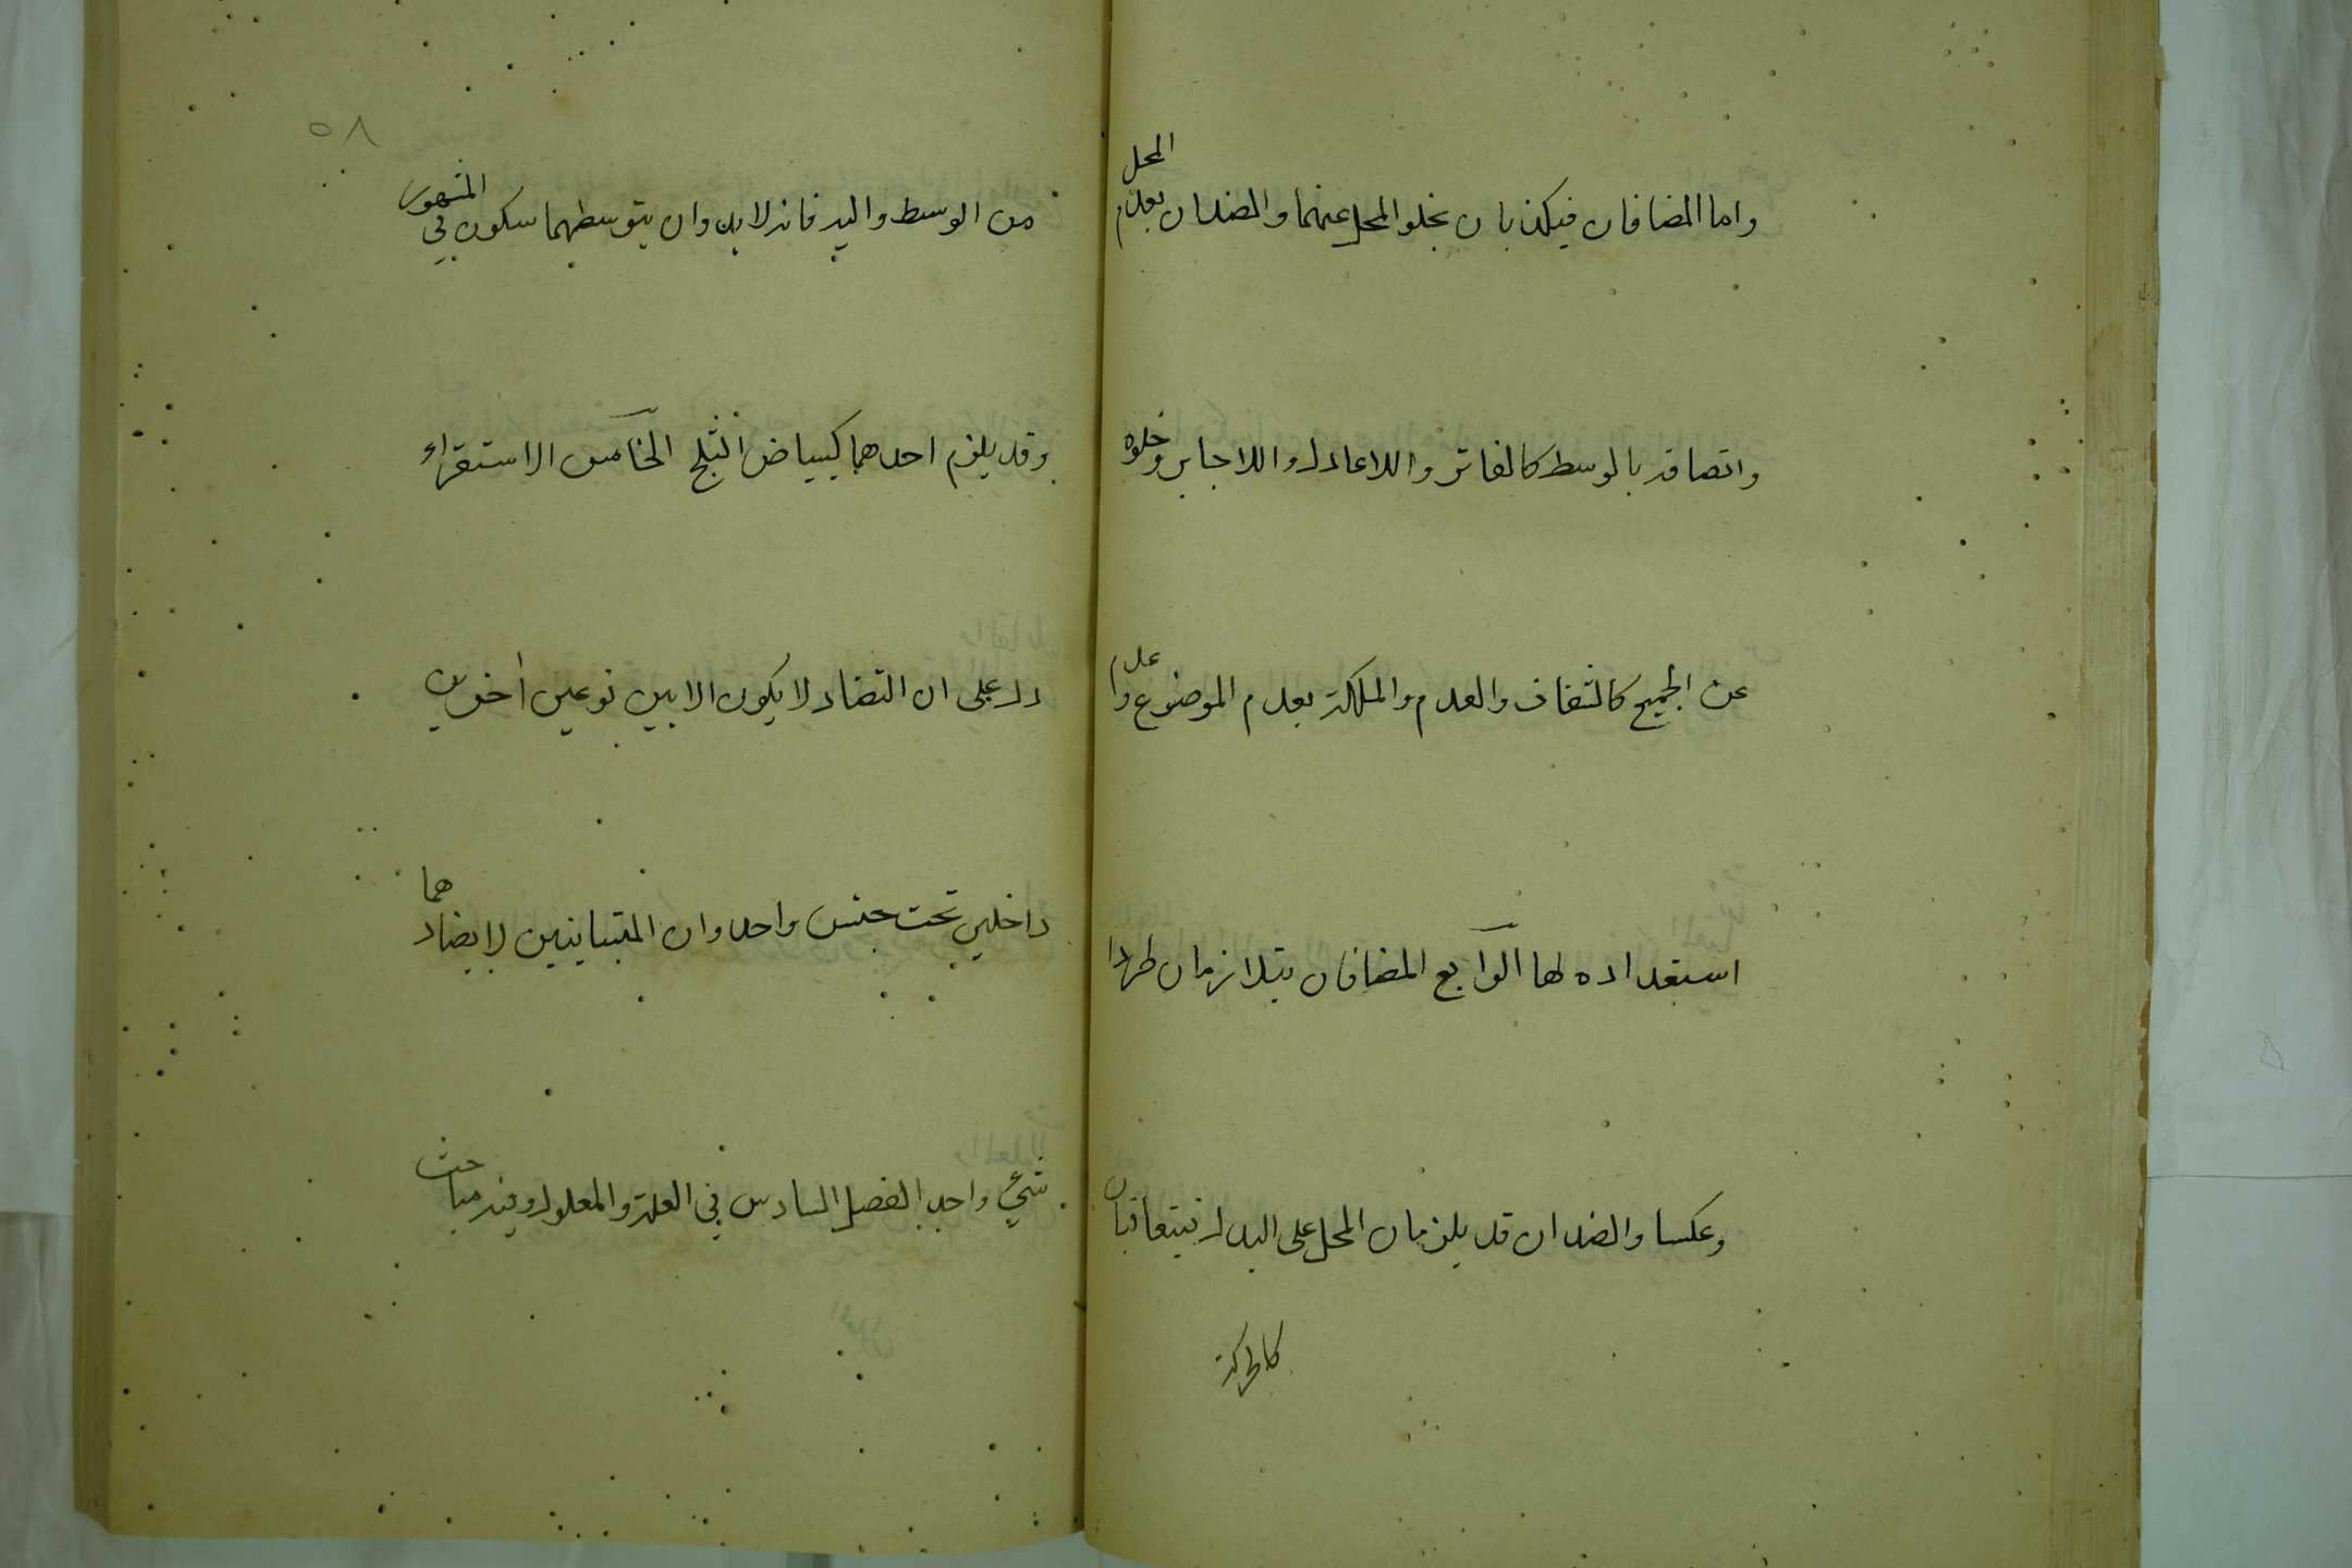 واما المضافان فيكذبان بخلو المحل عنهما والضدان بعدم المحل
واتصافه بالوسط كالفاتر واللاعادل واللاجاير وخلوه
عن الجميع كالشفاف والعدم والملكة بعدم الموضوع وا عدم
استعداده لها الرابع المضافان يتلازمان طردا
وعكسا والضدان قد يلزمان المحل على البدل فيتعاقبان
كالحركة
٥٨
من الوسط واليه فانه لابد وان يتوسطهما سكون في المشهور
وقد يلزم احدهما كبياض الثلج الخامس الاستقراء
دل على ان التضاد لا يكون الا بين نوعين اخيرين
داخلين تحت جنس واحد وان المتباينين لا يضادهما
شيء واحد الفصل السادس في العلة والمعلول وفيه مباحث